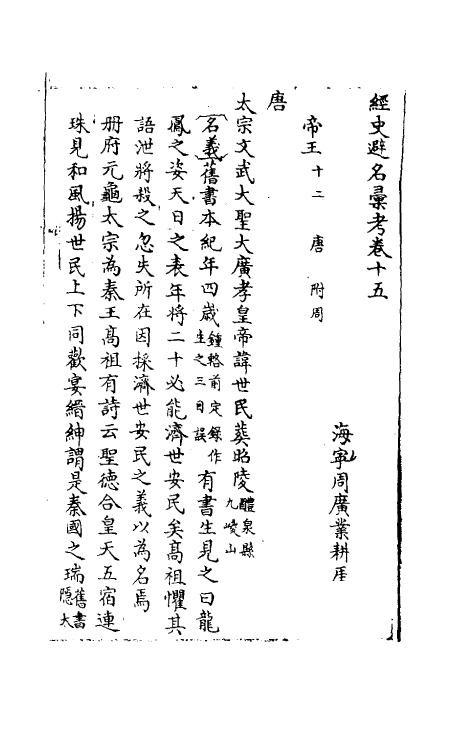 經史避名彙考卷十五
海寧周廣業耕厓
帝王十二 唐 附周
唐
太宗文武大聖大廣孝皇帝諱世民葬昭陵醴泉縣九嵕山
名義舊書本紀年四歲鍾輅前定錄作生之三日誤有書生見之曰龍
鳳之姿天日之表年將二十必能濟世安民矣高祖懼其
語泄將殺之忽失所在因採濟世安民之義以為名焉
册府元龜太宗為秦王高祖有詩云聖德合皇天五宿連
珠見和風揚世民上下同歡宴縉紳謂是秦國之瑞舊書隱太